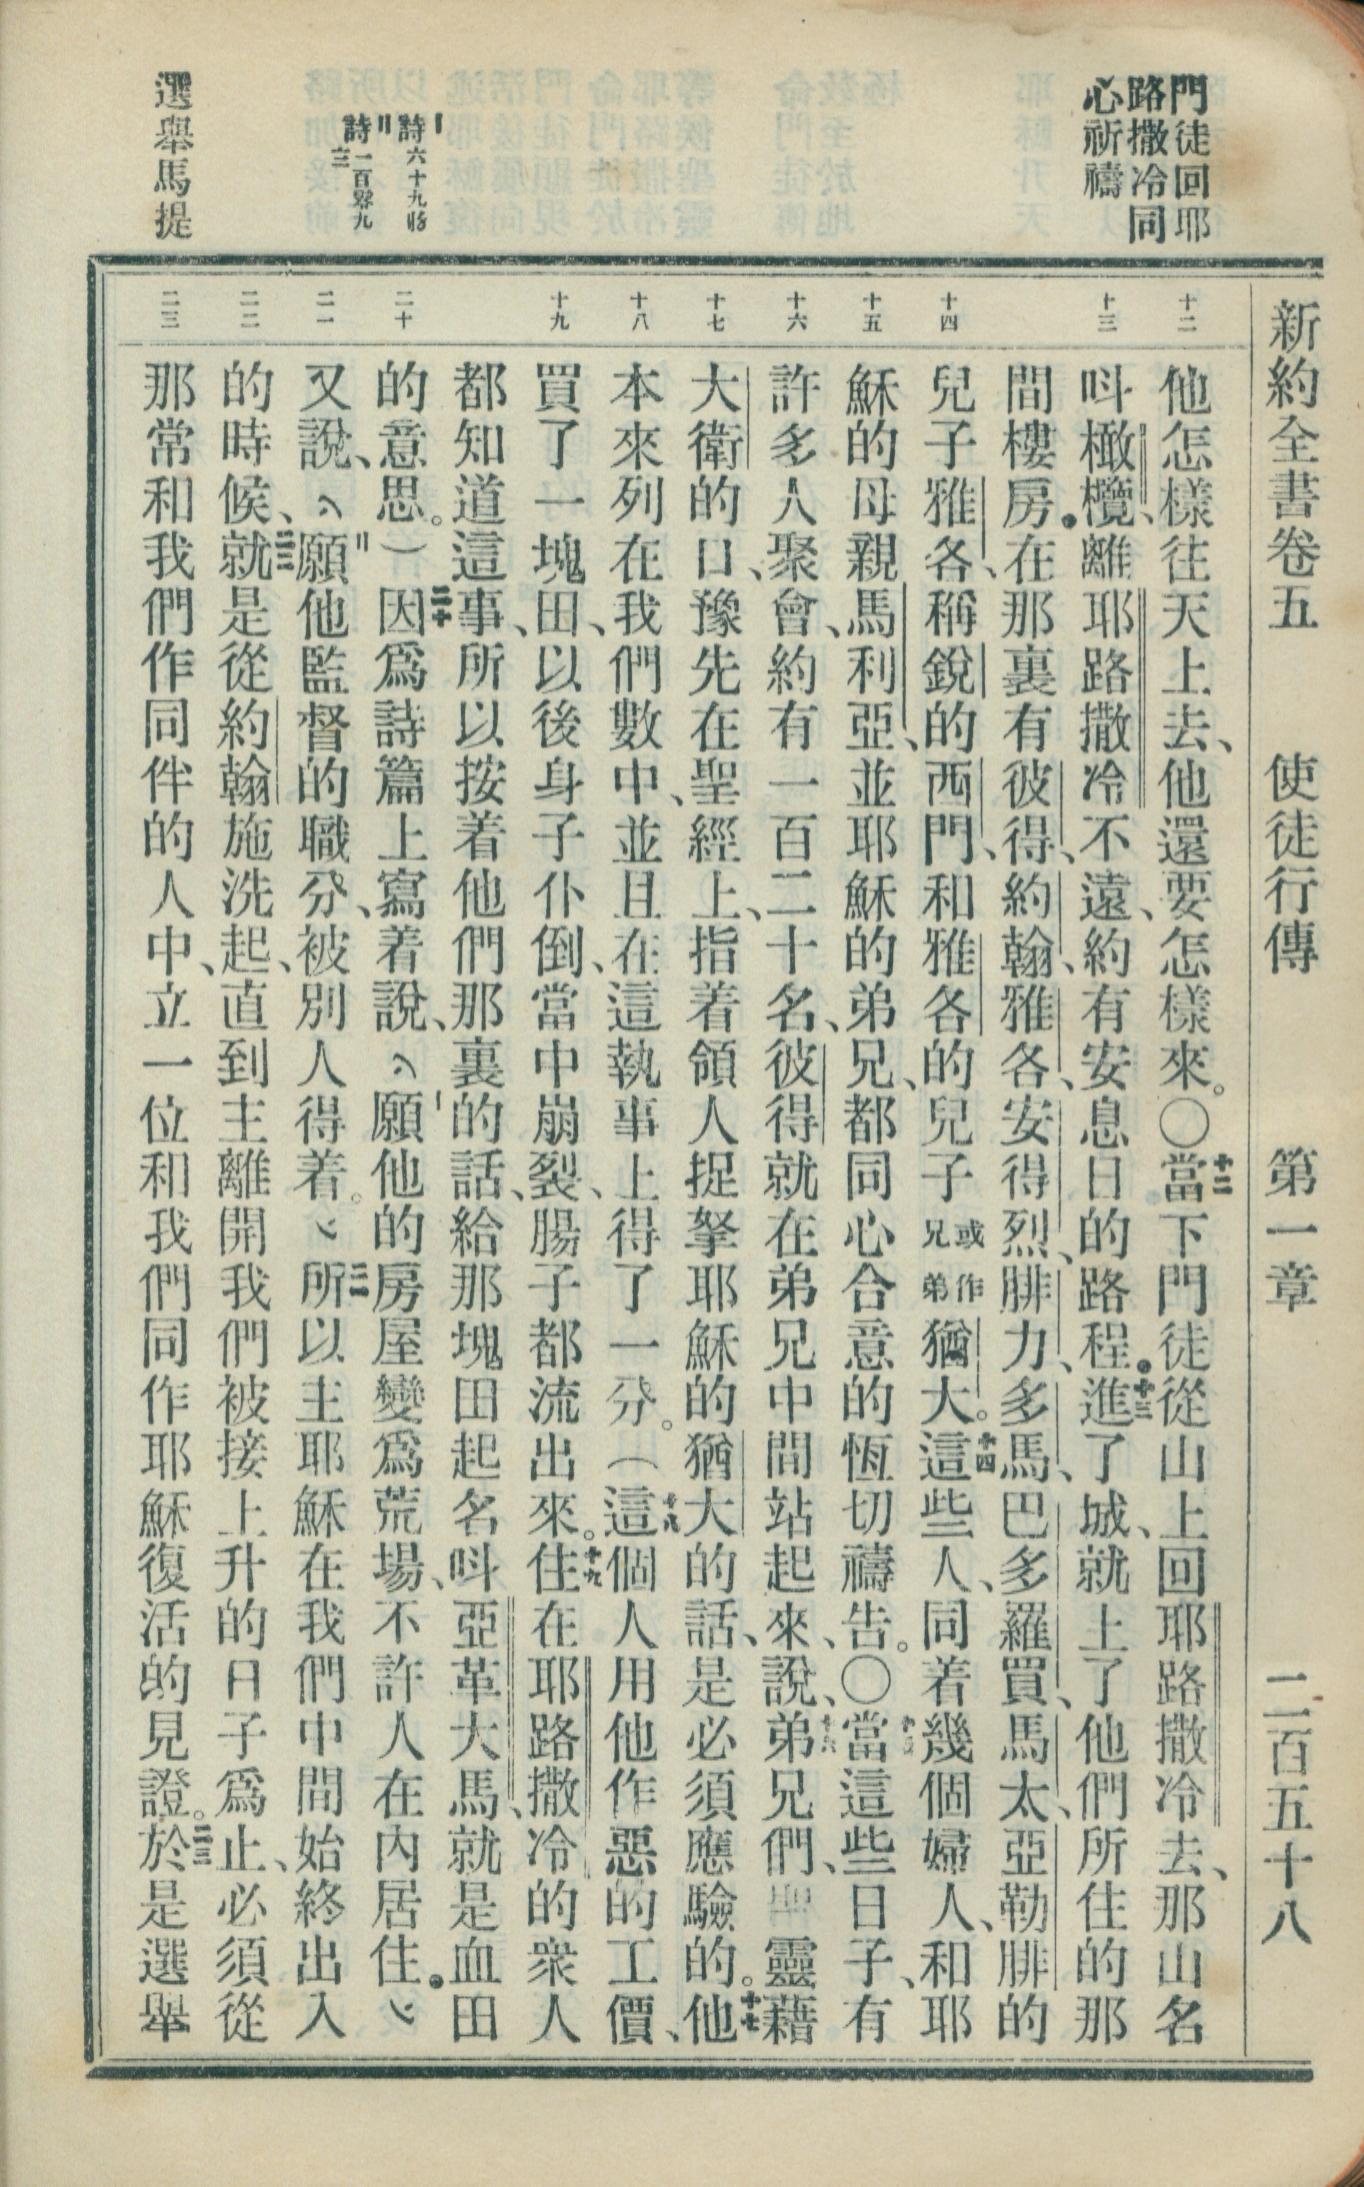 新約全書卷五　使徒行傳　第一章　二百五十八
門徒回耶
路撒冷同
心祈禱
詩六十九〢
詩一百零九
三
選舉馬提
十二
十三
十四
十五
十六
十七
十八
十九
二十
二一
二二
二三
他怎樣往天上去、他還要怎樣來。〇十二當下門徒從山上回耶路撒冷去、那山名
呌橄欖、離耶路撒冷不遠、約有安息日的路程．十三進了城、就上了他們所住的那
間樓房．在那裏有彼得、約翰、雅各、安得烈、腓力、多馬、巴多羅買、馬太、亞勒腓的
兒子雅各、稱銳的西門、和雅各的兒子或作兄弟猶大。十四這些人、同着幾個婦人、和耶
穌的母親馬利亞、並耶穌的弟兄、都同心合意的恆切禱告。〇十五當這些日子、有
許多人聚會、約有一百二十名、彼得就在弟兄中間站起來、說、十六弟兄們、聖靈藉
大衛的口、豫先在聖經上、指着領人捉拏耶穌的猶大的話、是必須應驗的。十七他
本來列在我們數中、並且在這執事上得了一分。（十八這個人用他作惡的工價、
買了一塊田、以後身子仆倒、當中崩裂、腸子都流出來。十九住在耶路撒冷的衆人
都知道這事、所以按着他們那裏的話、給那塊田起名呌亞革大馬、就是血田
的意思。）二十因爲詩篇上寫着說、願他的房屋變爲荒場、不許人在內居住．
又說、願他監督的職分、被別人得着。二一所以主耶穌在我們中間始終出入
的時候、二二就是從約翰施洗起、直到主離開我們被接上升的日子爲止、必須從
那常和我們作同伴的人中、立一位和我們同作耶穌復活的見證。二三於是選舉